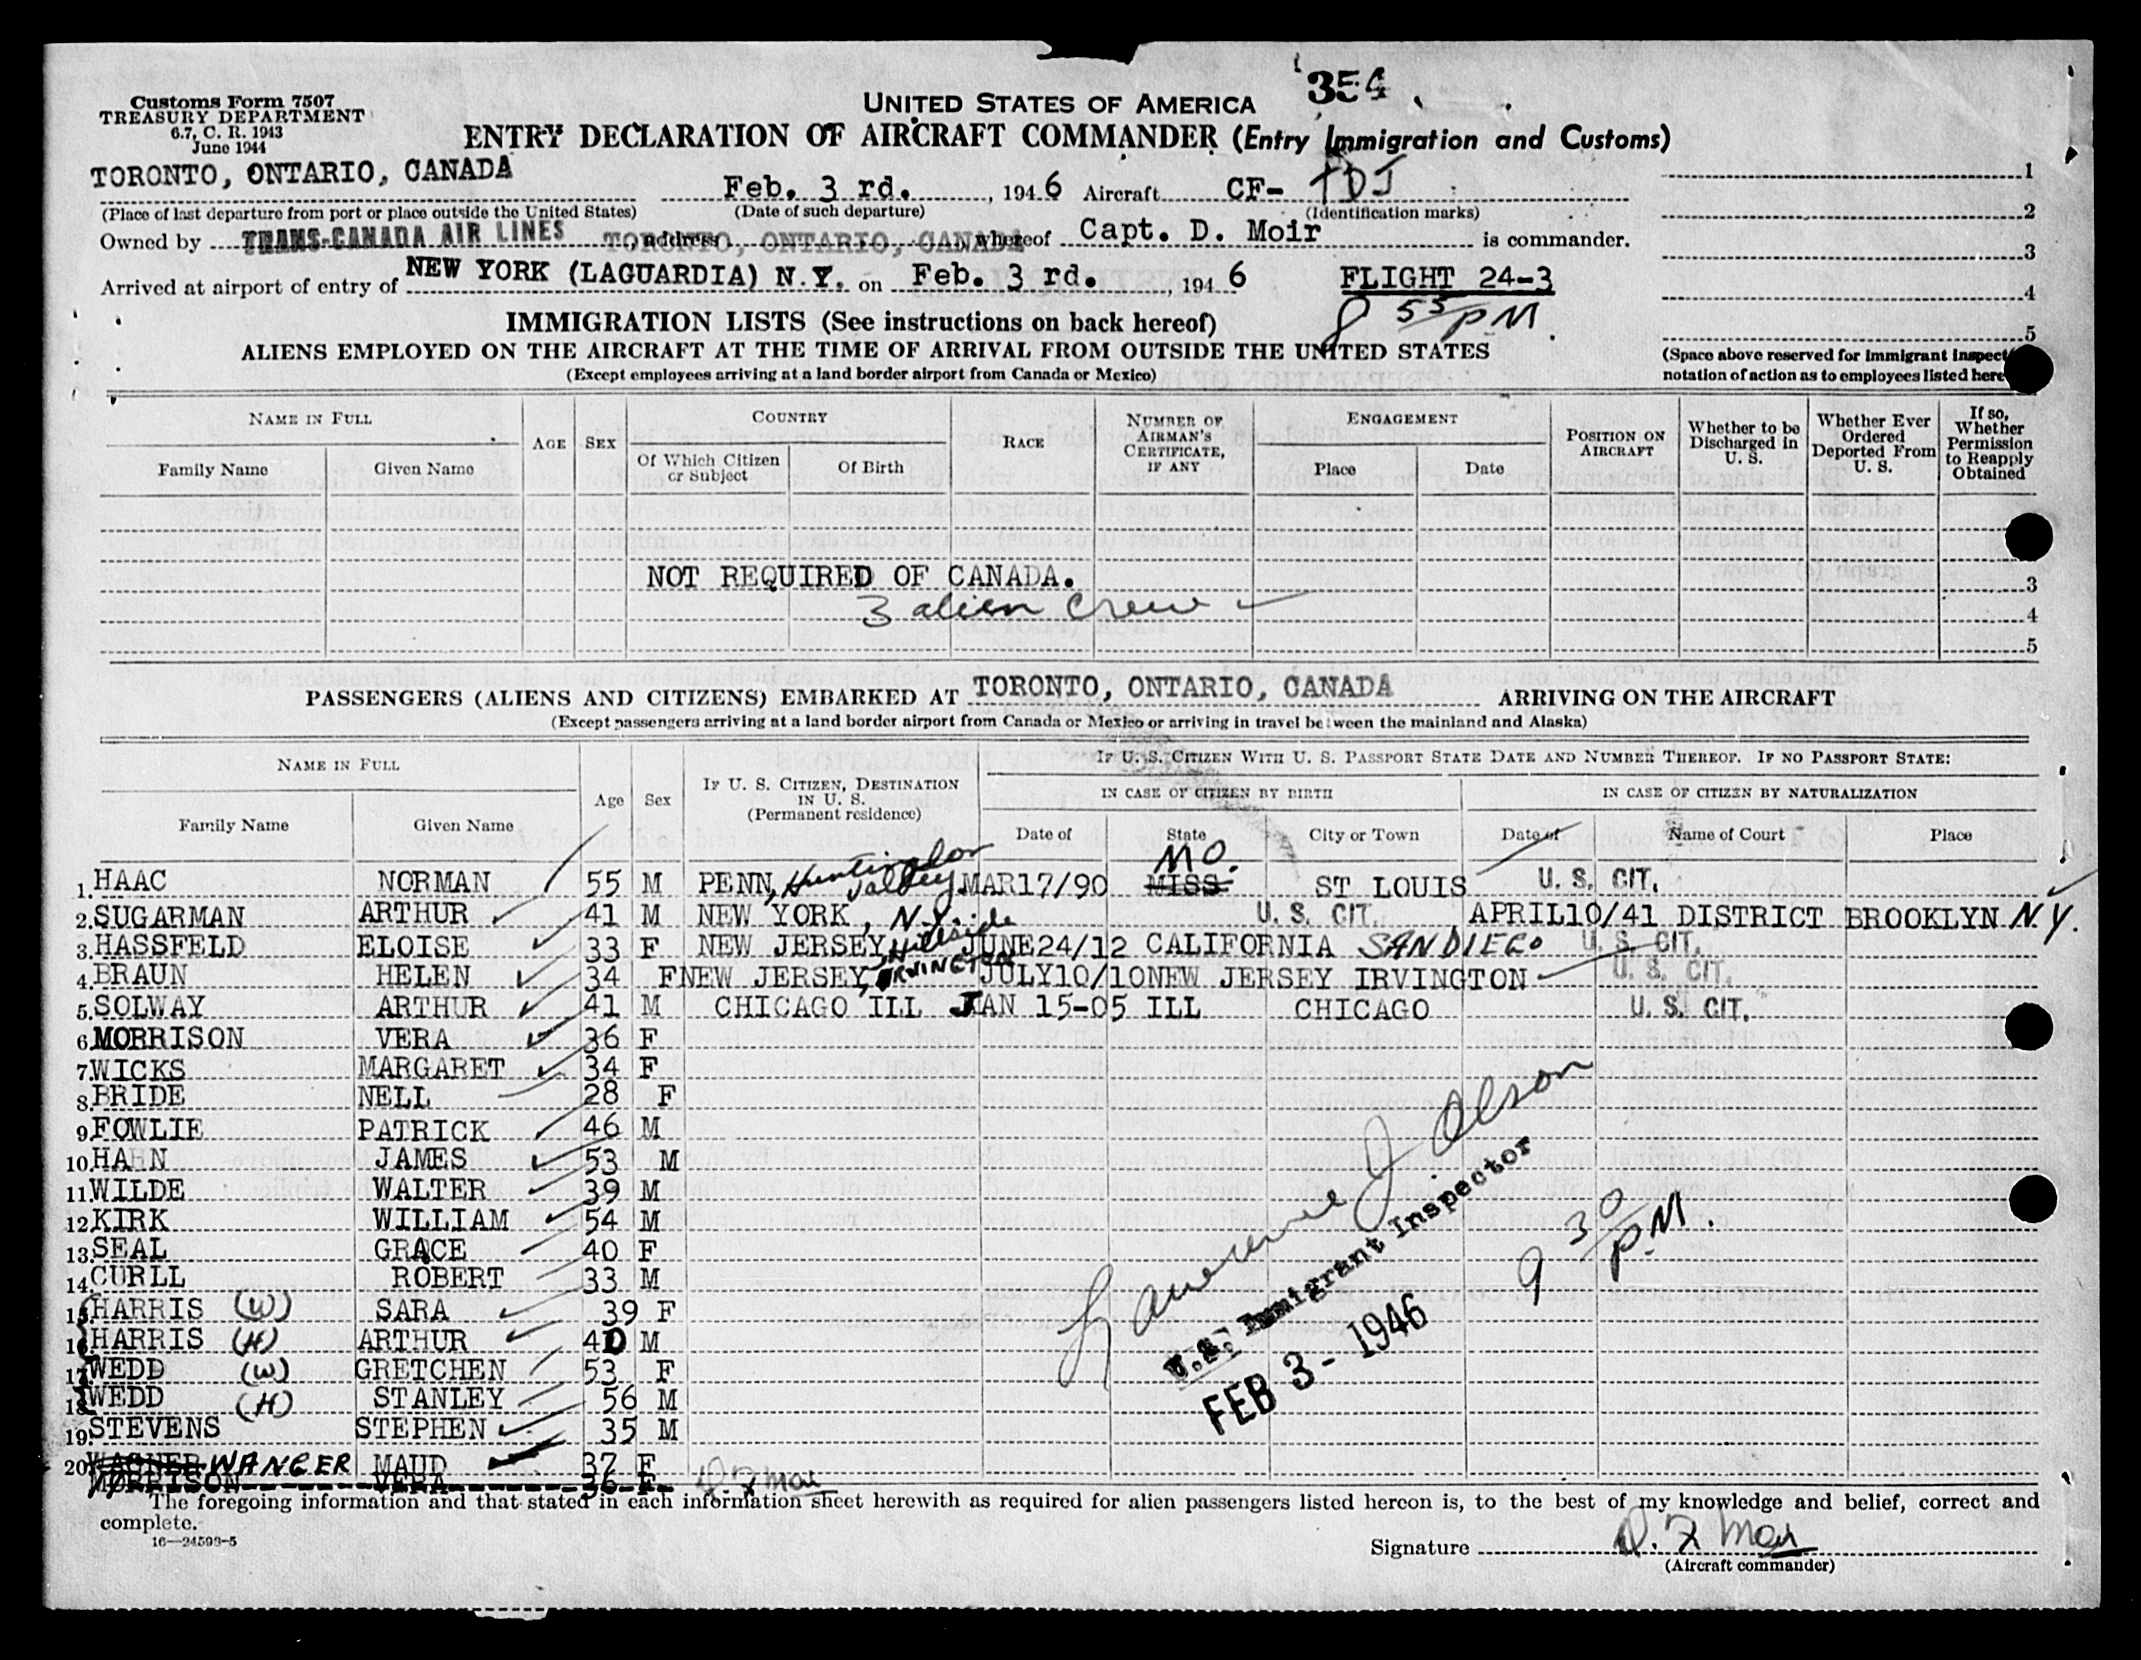 354
Customs Form 7507
TREASURY DEPARTMENT
6.7, C. R. 1943
June 1944
UNITED STATES OF AMERICA
ENTRY DECLARATION OF AIRCRAFT COMMANDER (Entry Immigration and Customs)
TORONTO, ONTARIO, CANADA Feb. 3 rd. , 1946 Aircraft CF- TDJ
(Place of last departure from port or place outside the United States) (Date of such departure) (Identification marks)
Owned by TRANS-CANADA AIR LINES , address TORONTO, ONTARIO, CANADA whereof Capt. D. Moir is commander.
Arrived at airport of entry of NEW YORK (LAGUARDIA) N.Y. on Feb. 3 rd. , 1946 FLIGHT 24-3
8 55 PM
1
2
3
4
5
IMMIGRATION LISTS (See instructions on back hereof)
ALIENS EMPLOYED ON THE AIRCRAFT AT THE TIME OF ARRIVAL FROM OUTSIDE THE UNITED STATES
(Except employees arriving at a land border airport from Canada or Mexico)
(Space above reserved for Immigrant Inspect
notation of action as to employees listed here
NAME IN FULL
Family Name Given Name
AGE SEX
COUNTRY
Of Which Citizen or Subject Of Birth
RACE
NUMBER OF AIRMAN'S CERTIFICATE, IF ANY
ENGAGEMENT
Place Date
POSITION ON AIRCRAFT
Whether to be Discharged in U. S.
Whether Ever Ordered Deported From U. S.
If so, Whether Permission to Reapply Obtained
NOT REQUIRED OF CANADA. 3
3 alien crew 4
5
PASSENGERS (ALIENS AND CITIZENS) EMBARKED AT TORONTO, ONTARIO, CANADA ARRIVING ON THE AIRCRAFT
(Except passengers arriving at a land border airport from Canada or Mexico or arriving in travel between the mainland and Alaska)
NAME IN FULL
Family Name Given Name
Age Sex
IF U. S. CITIZEN, DESTINATION IN U. S.
(Permanent residence)
IF U. S. CITIZEN WITH U. S. PASSPORT STATE DATE AND NUMBER THEREOF. IF NO PASSPORT STATE:
IN CASE OF CITIZEN BY BIRTH IN CASE OF CITIZEN BY NATURALIZATION
Date of State City or Town Date of Name of Court Place
1. HAAC NORMAN 55 M PENN, Huntingdon Valley MAR17/90 MISS. MO. ST LOUIS U. S. CIT.
2. SUGARMAN ARTHUR 41 M NEW YORK, N.Y. U. S. CIT. APRIL10/41 DISTRICT BROOKLYN N.Y.
3. HASSFELD ELOISE 33 F NEW JERSEY, Hillside JUNE24/12 CALIFORNIA SAN DIEGO U. S. CIT.
4. BRAUN HELEN 34 F NEW JERSEY, IRVINGTON JULY10/10 NEW JERSEY IRVINGTON U. S. CIT.
5. SOLWAY ARTHUR 41 M CHICAGO ILL JAN 15-05 ILL CHICAGO U. S. CIT.
6. MORRISON VERA 36 F
7. WICKS MARGARET 34 F
8. BRIDE NELL 28 F
9. FOWLIE PATRICK 46 M
10. HAHN JAMES 53 M
11. WILDE WALTER 39 M
12. KIRK WILLIAM 54 M
13. SEAL GRACE 40 F
14. CURLL ROBERT 33 M
15. HARRIS (W) SARA 39 F
16. HARRIS (H) ARTHUR 40 M
17. WEDD (W) GRETCHEN 53 F
18. WEDD (H) STANLEY 56 M
19. STEVENS STEPHEN 35 M
20. WAGNER WANGER MAUD 37 F
MORRISON VERA 36 F
Lawrence J Olson
U.S. Immigrant Inspector
FEB 3 - 1946
9 30 PM.
The foregoing information and that stated in each information sheet herewith as required for alien passengers listed hereon is, to the best of my knowledge and belief, correct and
complete.
16—24593-5
Signature
(Aircraft commander)